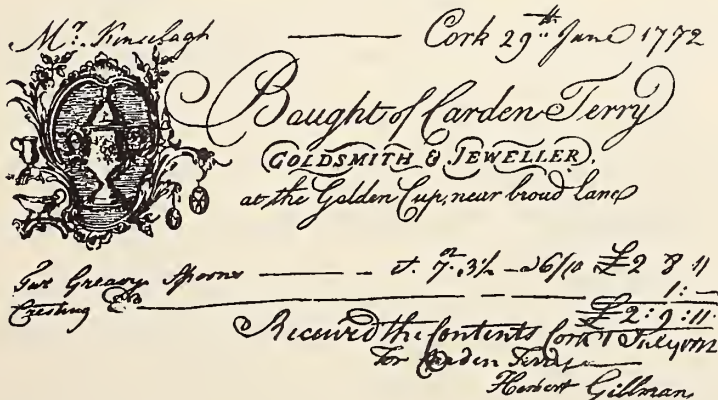 Mr. Kinselagh — Cork 29th June 1772
Bought of Carden Terry
GOLDSMITH & JEWELLER,
at the Golden Cup, near broad Lane
Two Gravy Spoons — wt. 7. 3½ — a 6/10 £2 8 11
Cresting — 1: —
£2: 9: 11
Received the Contents Cork 1 July 1772
For Carden Terry
Herbert Gillman